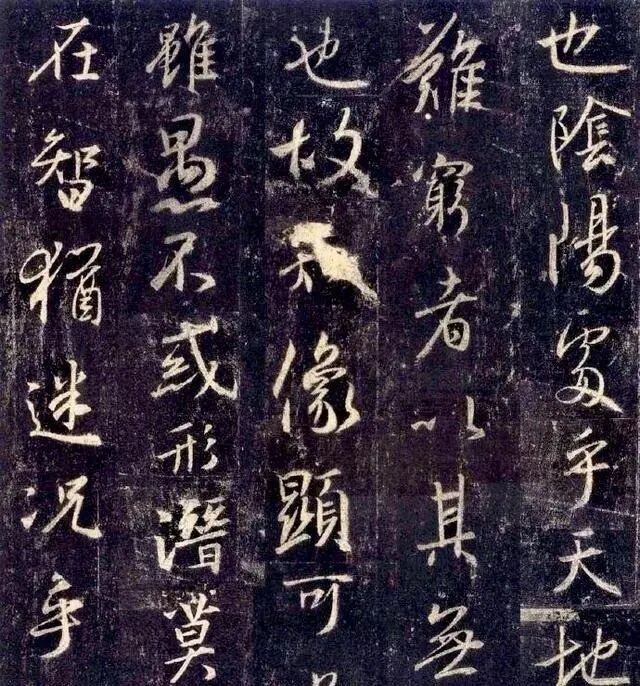 也陰陽處乎天地
難窮者以其無
也故像顯可
雖愚不惑形潛莫
在智猶迷況乎